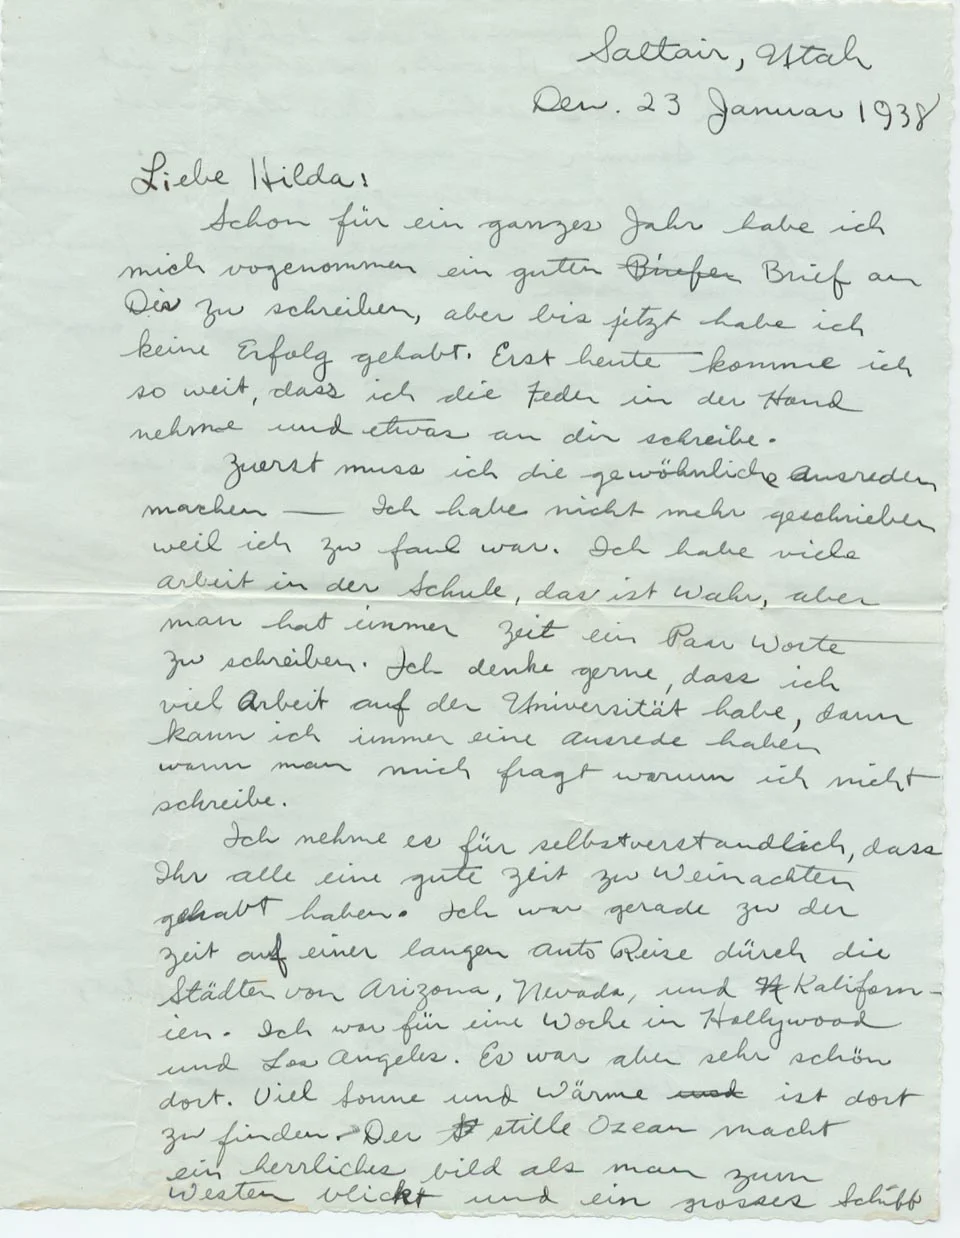 Saltair, Utah
Den. 23 Januar 1938
Liebe Hilda:
Schon für ein ganzes Jahr habe ich
mich vogenommen ein guten Briefen Brief an
Dir zu schreiben, aber bis jetzt habe ich
keine Erfolg gehabt. Erst heute komme ich
so weit, dass ich die Feder in der Hand
nehme und etwas an dir schreibe.
Zuerst muss ich die gewöhnliche Ausreden
machen — Ich habe nicht mehr geschrieben
weil ich zu faul war. Ich habe viele
arbeit in der Schule, das ist Wahr, aber
man hat immer zeit ein Paar Worte
zu schreiben. Ich denke gerne, dass ich
viel Arbeit auf der Universität habe, dann
kann ich immer eine Ausrede haben
wann man mich fragt warum ich nicht
schreibe.
Ich nehme es für selbstverstandlich, dass
Ihr alle eine gute Zeit zu Weinachten
gehabt haben. Ich war gerade zu der
zeit auf einer langen auto Reise dürch die
Städten von Arizona, Nevada, und Kaliforn-
ien. Ich war für eine Woche in Hollywood
und Los Angeles. Es war aber sehr schön
dort. Viel Sonne und Wärme und ist dort
zu finden. Der stille Ozean macht
ein herrliches bild als man zum
Westen blickt und ein grosses Schiff